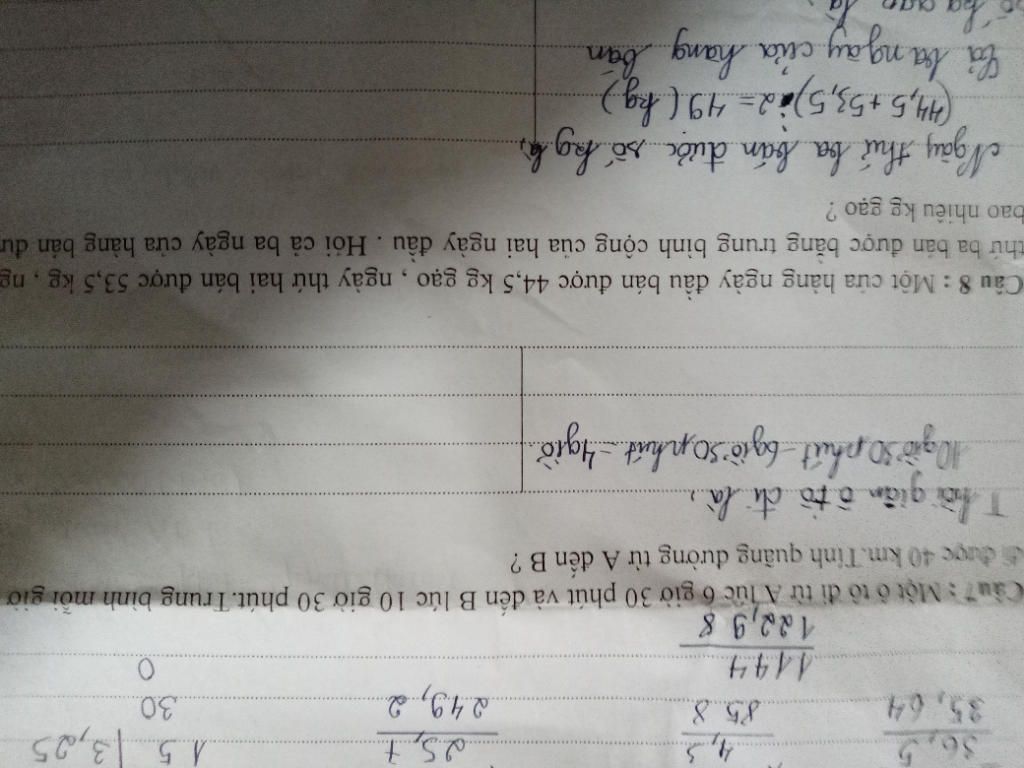 36,5
35,64
4,3
858
1144
122,98
25,7
249,2
15 | 3,25
30
0
Câu 7 : Một ô tô đi từ A lúc 6 giờ 30 phút và đến B lúc 10 giờ 30 phút.Trung bình mỗi giờ
đi được 40 km.Tính quãng đường từ A đến B ?
Thời giãn ô tô đi là,
10giờ30phút - 6giờ30phút = 4giờ.
Câu 8 : Một cửa hàng ngày đầu bán được 44,5 kg gạo , ngày thứ hai bán được 53,5 kg , ng
thứ ba bán được bằng trung bình cộng của hai ngày đầu . Hỏi cả ba ngày cửa hàng bán đư
bao nhiêu kg gạo ?
Ngày thứ ba bán được số kg là,
(44,5 + 53,5) : 2 = 49 (kg)
Cả ba ngày cửa hàng bán
số kg gạo là